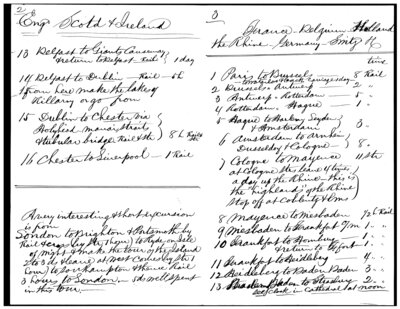 2/
Eng Scotd & Ireland
13 Belfast to Giants Causeway
& return to Belfast Rail 1 day
14 Belfast to Dublin — Rail — 5h
from here make the lakes of
Killarney or go from
15 Dublin to Chester via
Holyhead Manai Strait
& tubular bridge Rail & Str 8 h
16 Chester to Liverpool — 1 Rail
A very interesting & short excursion
is from
London to Brighton & Portsmouth by
Rail & cross by Str (hour) to Ryde on Isle
of Wight & make the tour of the Island
2 to 3 d & leave at West Cowes by Str 1
hour to Southampton & thence Rail
3 hours to London, – well spent
in this tour
3
France Belgium Holland
the Rhine Germany Switz
time
1 Paris to Brussels 8 Rail
2 Brussels – Antwerp – 2 "
3 Antwerp – Rotterdam – 5 "
4 Rotterdam – Hague – 1 "
5 Hague to Leyden
& Amsterdam 3 "
6 Amsterdam to Arnheim
Dusseldorf & Cologne 8 "
7 Cologne to Mayence 11 Str
at Cologne Str leave if time,
a day up the Rhine – this is
the "highlands" of the Rhine
stop off at Coblentz & Ems
8 Mayence to Wiesbaden ½ h Rail
9 Wiesbaden to Frankfurt /m 1 "
10 Frankfort to Homburg
& return to Ffort 1 "
11 Frankfort to Heidelberg – 4 "
12 Heidelberg to Baden Baden 3 "
13 Baden Baden to Strasburg 2 "
See Clock in Cathedral at noon